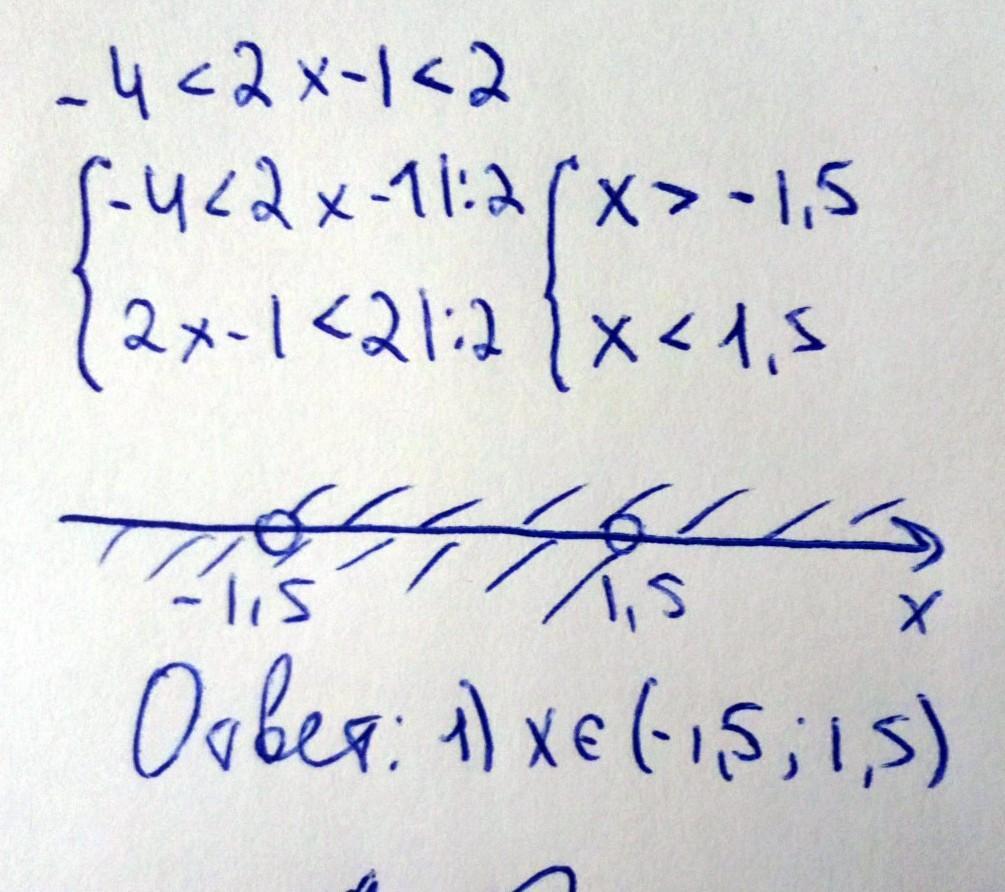 -4<2x-1<2
{-4<2x-1|:2 {x>-1,5
2x-1<2|:2 x<1,5
-1,5 1,5 x
Ответ: 1) x∈(-1,5;1,5)